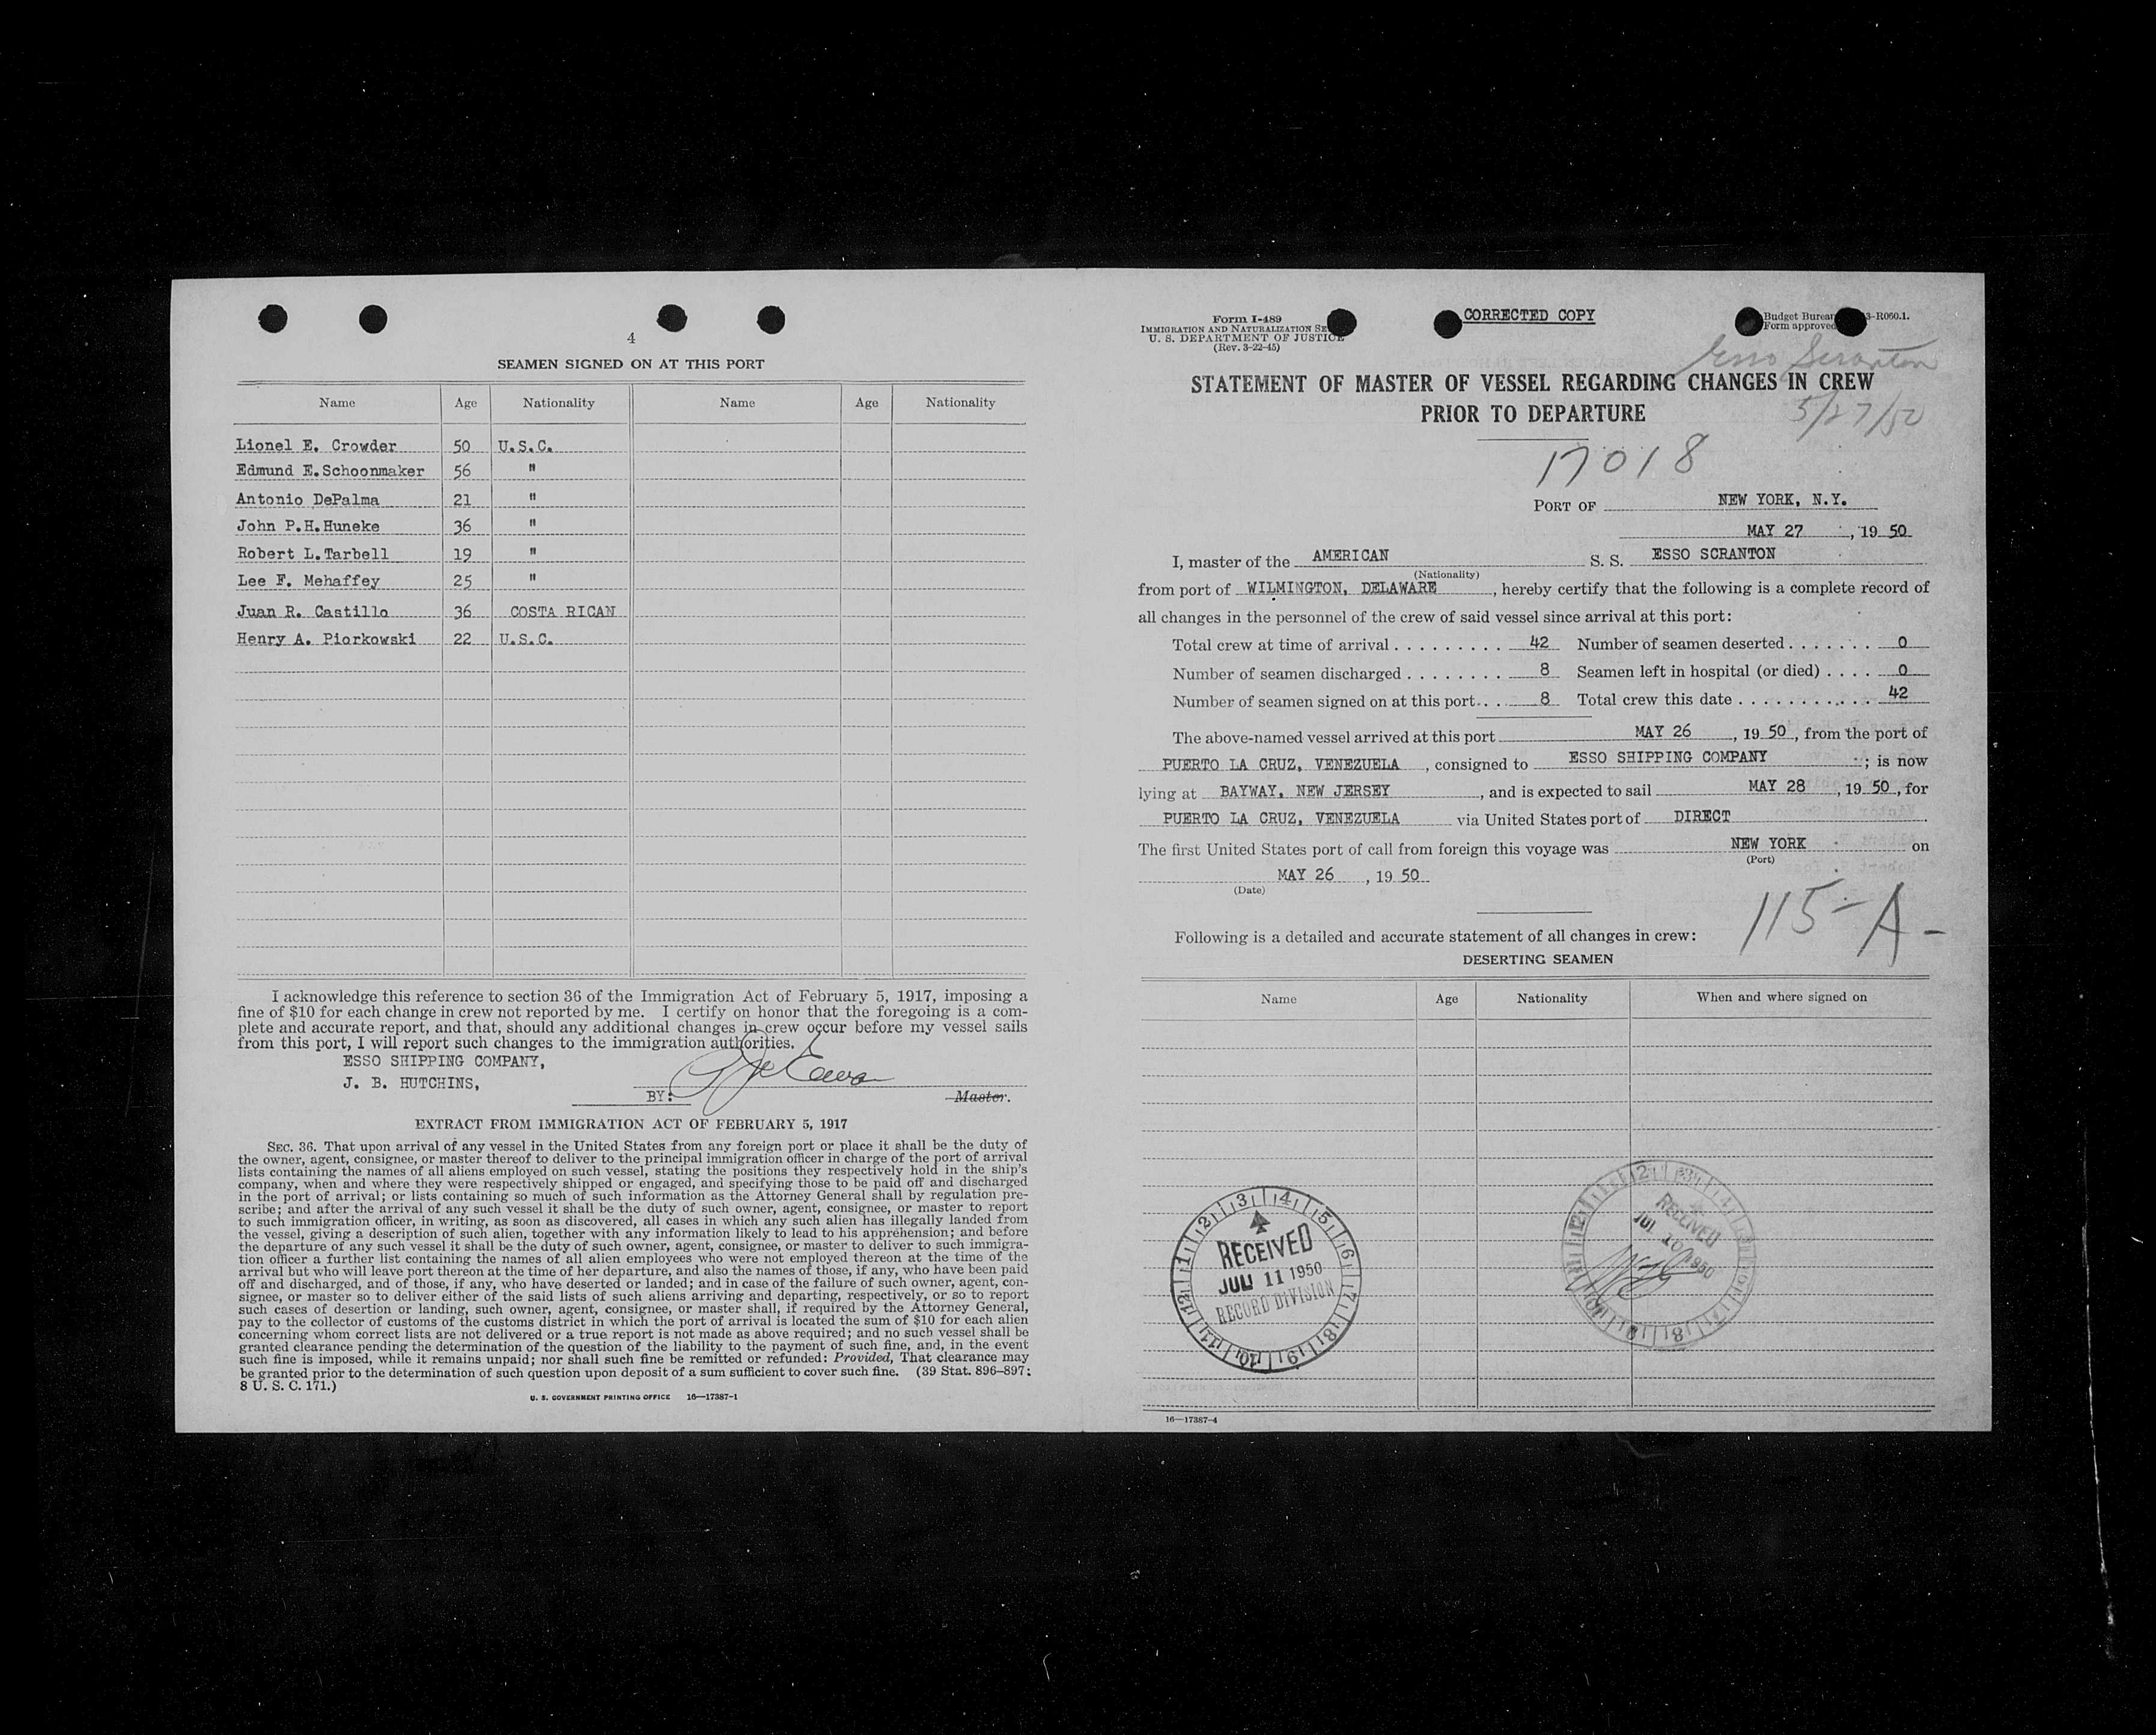 4
SEAMEN SIGNED ON AT THIS PORT
Name Age Nationality Name Age Nationality
Lionel E. Crowder 50 U.S.C.
Edmund E.Schoonmaker 56 "
Antonio DePalma 21 "
John P.H.Huneke 36 "
Robert L.Tarbell 19 "
Lee F. Mehaffey 25 "
Juan R. Castillo 36 COSTA RICAN
Henry A. Piorkowski 22 U.S.C.
I acknowledge this reference to section 36 of the Immigration Act of February 5, 1917, imposing a
fine of $10 for each change in crew not reported by me. I certify on honor that the foregoing is a com-
plete and accurate report, and that, should any additional changes in crew occur before my vessel sails
from this port, I will report such changes to the immigration authorities.
ESSO SHIPPING COMPANY,
J. B. HUTCHINS,
BY:
Master.
EXTRACT FROM IMMIGRATION ACT OF FEBRUARY 5, 1917
SEC. 36. That upon arrival of any vessel in the United States from any foreign port or place it shall be the duty of
the owner, agent, consignee, or master thereof to deliver to the principal immigration officer in charge of the port of arrival
lists containing the names of all aliens employed on such vessel, stating the positions they respectively hold in the ship's
company, when and where they were respectively shipped or engaged, and specifying those to be paid off and discharged
in the port of arrival; or lists containing so much of such information as the Attorney General shall by regulation pre-
scribe; and after the arrival of any such vessel it shall be the duty of such owner, agent, consignee, or master to report
to such immigration officer, in writing, as soon as discovered, all cases in which any such alien has illegally landed from
the vessel, giving a description of such alien, together with any information likely to lead to his apprehension; and before
the departure of any such vessel it shall be the duty of such owner, agent, consignee, or master to deliver to such immigra-
tion officer a further list containing the names of all alien employees who were not employed thereon at the time of the
arrival but who will leave port thereon at the time of her departure, and also the names of those, if any, who have been paid
off and discharged, and of those, if any, who have deserted or landed; and in case of the failure of such owner, agent, con-
signee, or master so to deliver either of the said lists of such aliens arriving and departing, respectively, or so to report
such cases of desertion or landing, such owner, agent, consignee, or master shall, if required by the Attorney General,
pay to the collector of customs of the customs district in which the port of arrival is located the sum of $10 for each alien
concerning whom correct lists are not delivered or a true report is not made as above required; and no such vessel shall be
granted clearance pending the determination of the question of the liability to the payment of such fine, and, in the event
such fine is imposed, while it remains unpaid; nor shall such fine be remitted or refunded: Provided, That clearance may
be granted prior to the determination of such question upon deposit of a sum sufficient to cover such fine. (39 Stat. 896–897;
8 U. S. C. 171.)
U. S. GOVERNMENT PRINTING OFFICE 16—17387-1
Form I-489
IMMIGRATION AND NATURALIZATION SE
U. S. DEPARTMENT OF JUSTICE
(Rev. 3-22-45)
CORRECTED COPY
Budget Bureau 3-R060.1.
Form approved
Esso Scranton
5/27/50
STATEMENT OF MASTER OF VESSEL REGARDING CHANGES IN CREW
PRIOR TO DEPARTURE
17018
PORT OF NEW YORK, N.Y.
MAY 27, 19 50
I, master of the AMERICAN S. S. ESSO SCRANTON
(Nationality)
from port of WILMINGTON, DELAWARE, hereby certify that the following is a complete record of
all changes in the personnel of the crew of said vessel since arrival at this port:
Total crew at time of arrival 42 Number of seamen deserted 0
Number of seamen discharged 8 Seamen left in hospital (or died) 0
Number of seamen signed on at this port 8 Total crew this date 42
The above-named vessel arrived at this port MAY 26, 19 50, from the port of
PUERTO LA CRUZ, VENEZUELA, consigned to ESSO SHIPPING COMPANY; is now
lying at BAYWAY, NEW JERSEY, and is expected to sail MAY 28, 19 50, for
PUERTO LA CRUZ, VENEZUELA via United States port of DIRECT.
The first United States port of call from foreign this voyage was NEW YORK on
(Port)
MAY 26, 19 50
(Date)
115-A-
Following is a detailed and accurate statement of all changes in crew:
DESERTING SEAMEN
Name Age Nationality When and where signed on
RECEIVED
JUL 11 1950
RECORD DIVISION
RECEIVED
JUL 10 1950
16—17387-4